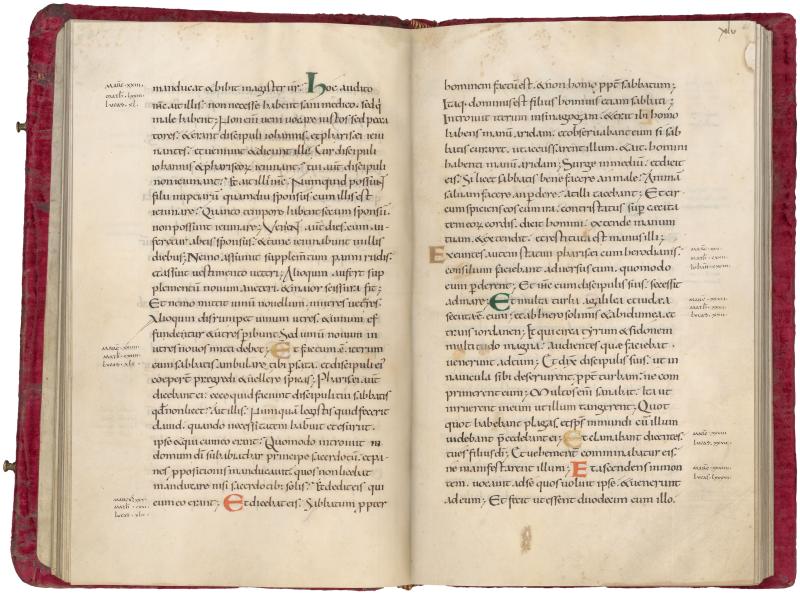 manducat & bibit magister ur̄. hoc audito
ih̄c ait illis. non necesse habent sani medico. sed q̇
male habent; Non enī ueni uocare iustos sed pecca
tores. & erant discipuli iohannis. et pharisei ieiu
nantes. et ueniunt & dicunt illi; Cur discipuli
iohannis & phariseoꝝ ieiunant. tui aut̄ discipuli
non ieiunant. Et ait illi ih̄c. Numquid possunt
filii nuptiarū quamdiu sponsus cum illis est
ieiunare. Quanto tempore habent secum sponsū.
non possunt ieiunare; Venient aut̄ dies. cum au-
feretur ab eis sponsus. & tunc ieiunabunt in illis
diebus; Nemo assumentū supplem̄tum panni rudis
et assuit uestimento ueteri; Alioquin aufert sup-
plementū nouum a ueteri. & maior scissura fit;
Et nemo mittit uinū nouellum. in utres ueteres.
Alioquin disrumpet uinum utres. & uinum ef
fundetur & utres peribunt. Sed uinū nouum in
utres nouos mitti debet; Et factum ē. iterum
cum sabbatis ambularet ꝑ sata. et discipuli ei'
coeperunt pregredi & uellere spicas; Pharisei aut̄
dicebant ei. ecce quid faciunt discipuli tui sabbatis
qd̄ non licet. Ait illis. Numquā legistis quid fecerit
dauid. quando necessitatem habuit et esuriit.
ipse & qui cum eo erant; Quomodo introiuit in
domum dī sub abiathar principe sacerdotū. et pa-
nes ppositionis manducauit. quos non licebat
manducare nisi sacerdotibꝰ solis. Et dedit eis qui
cum eo erant; Et dicebat eis. Sabbatum ppter
xlv
hominem factū est. & non homo ppt̄ sabbatum;
Itaq; dominus est filius hominis etiam sabbati;
Introiuit iterum in sinagogam. & erat ibi homo
habens manū aridam. et obseruabant eum si sab
batis curaret. ut accusarent illum. & ait. homini
habenti manū aridam; Surge in mediū. et dicit
eis. Si licet sabbatis bene facere an male. Animā
saluam facere an perdere. at illi tacebant; Et cir
cumspiciens eos cum ira. contristatus sup̄ cecita
tem cordis. dicit homini. extende manum
tuam. & extendit. et restituta est manus illi;
Exeuntes. autem statim pharisei cum herodianis.
consilium faciebant aduersus eum. quomodo
eum perderent; Et ih̄c cum discipulis suis. secessit
ad mare; Et multa turba. a galilea et iudea
secuta ē eum. et ab hierosolimis & ab idumea. et
trans iordanen; Et qui circa tyrum & sidonem
multitudo magna. audientes que faciebat.
uenerunt ad eum; Et dix̄ discipulis suis. ut in
nauicula sibi deseruirent. ppt̄ turbam. ne com
primerent eum; Multos enī sanabat. Ita ut
inruerent in eum ut illum tangerent; Quot
quot habebant plagas. et sp̄s inmundi cū illum
uidebant pcedebant ei; Et clamabant dicentes.
tu es filius dī; Et uehementer comminabatur eis
ne manifestarent illum; Et ascendens in mon
tem. uocauit ad se quos uoluit ipse. & uenerunt
ad eum; Et fecit ut essent duodecim cum illo.